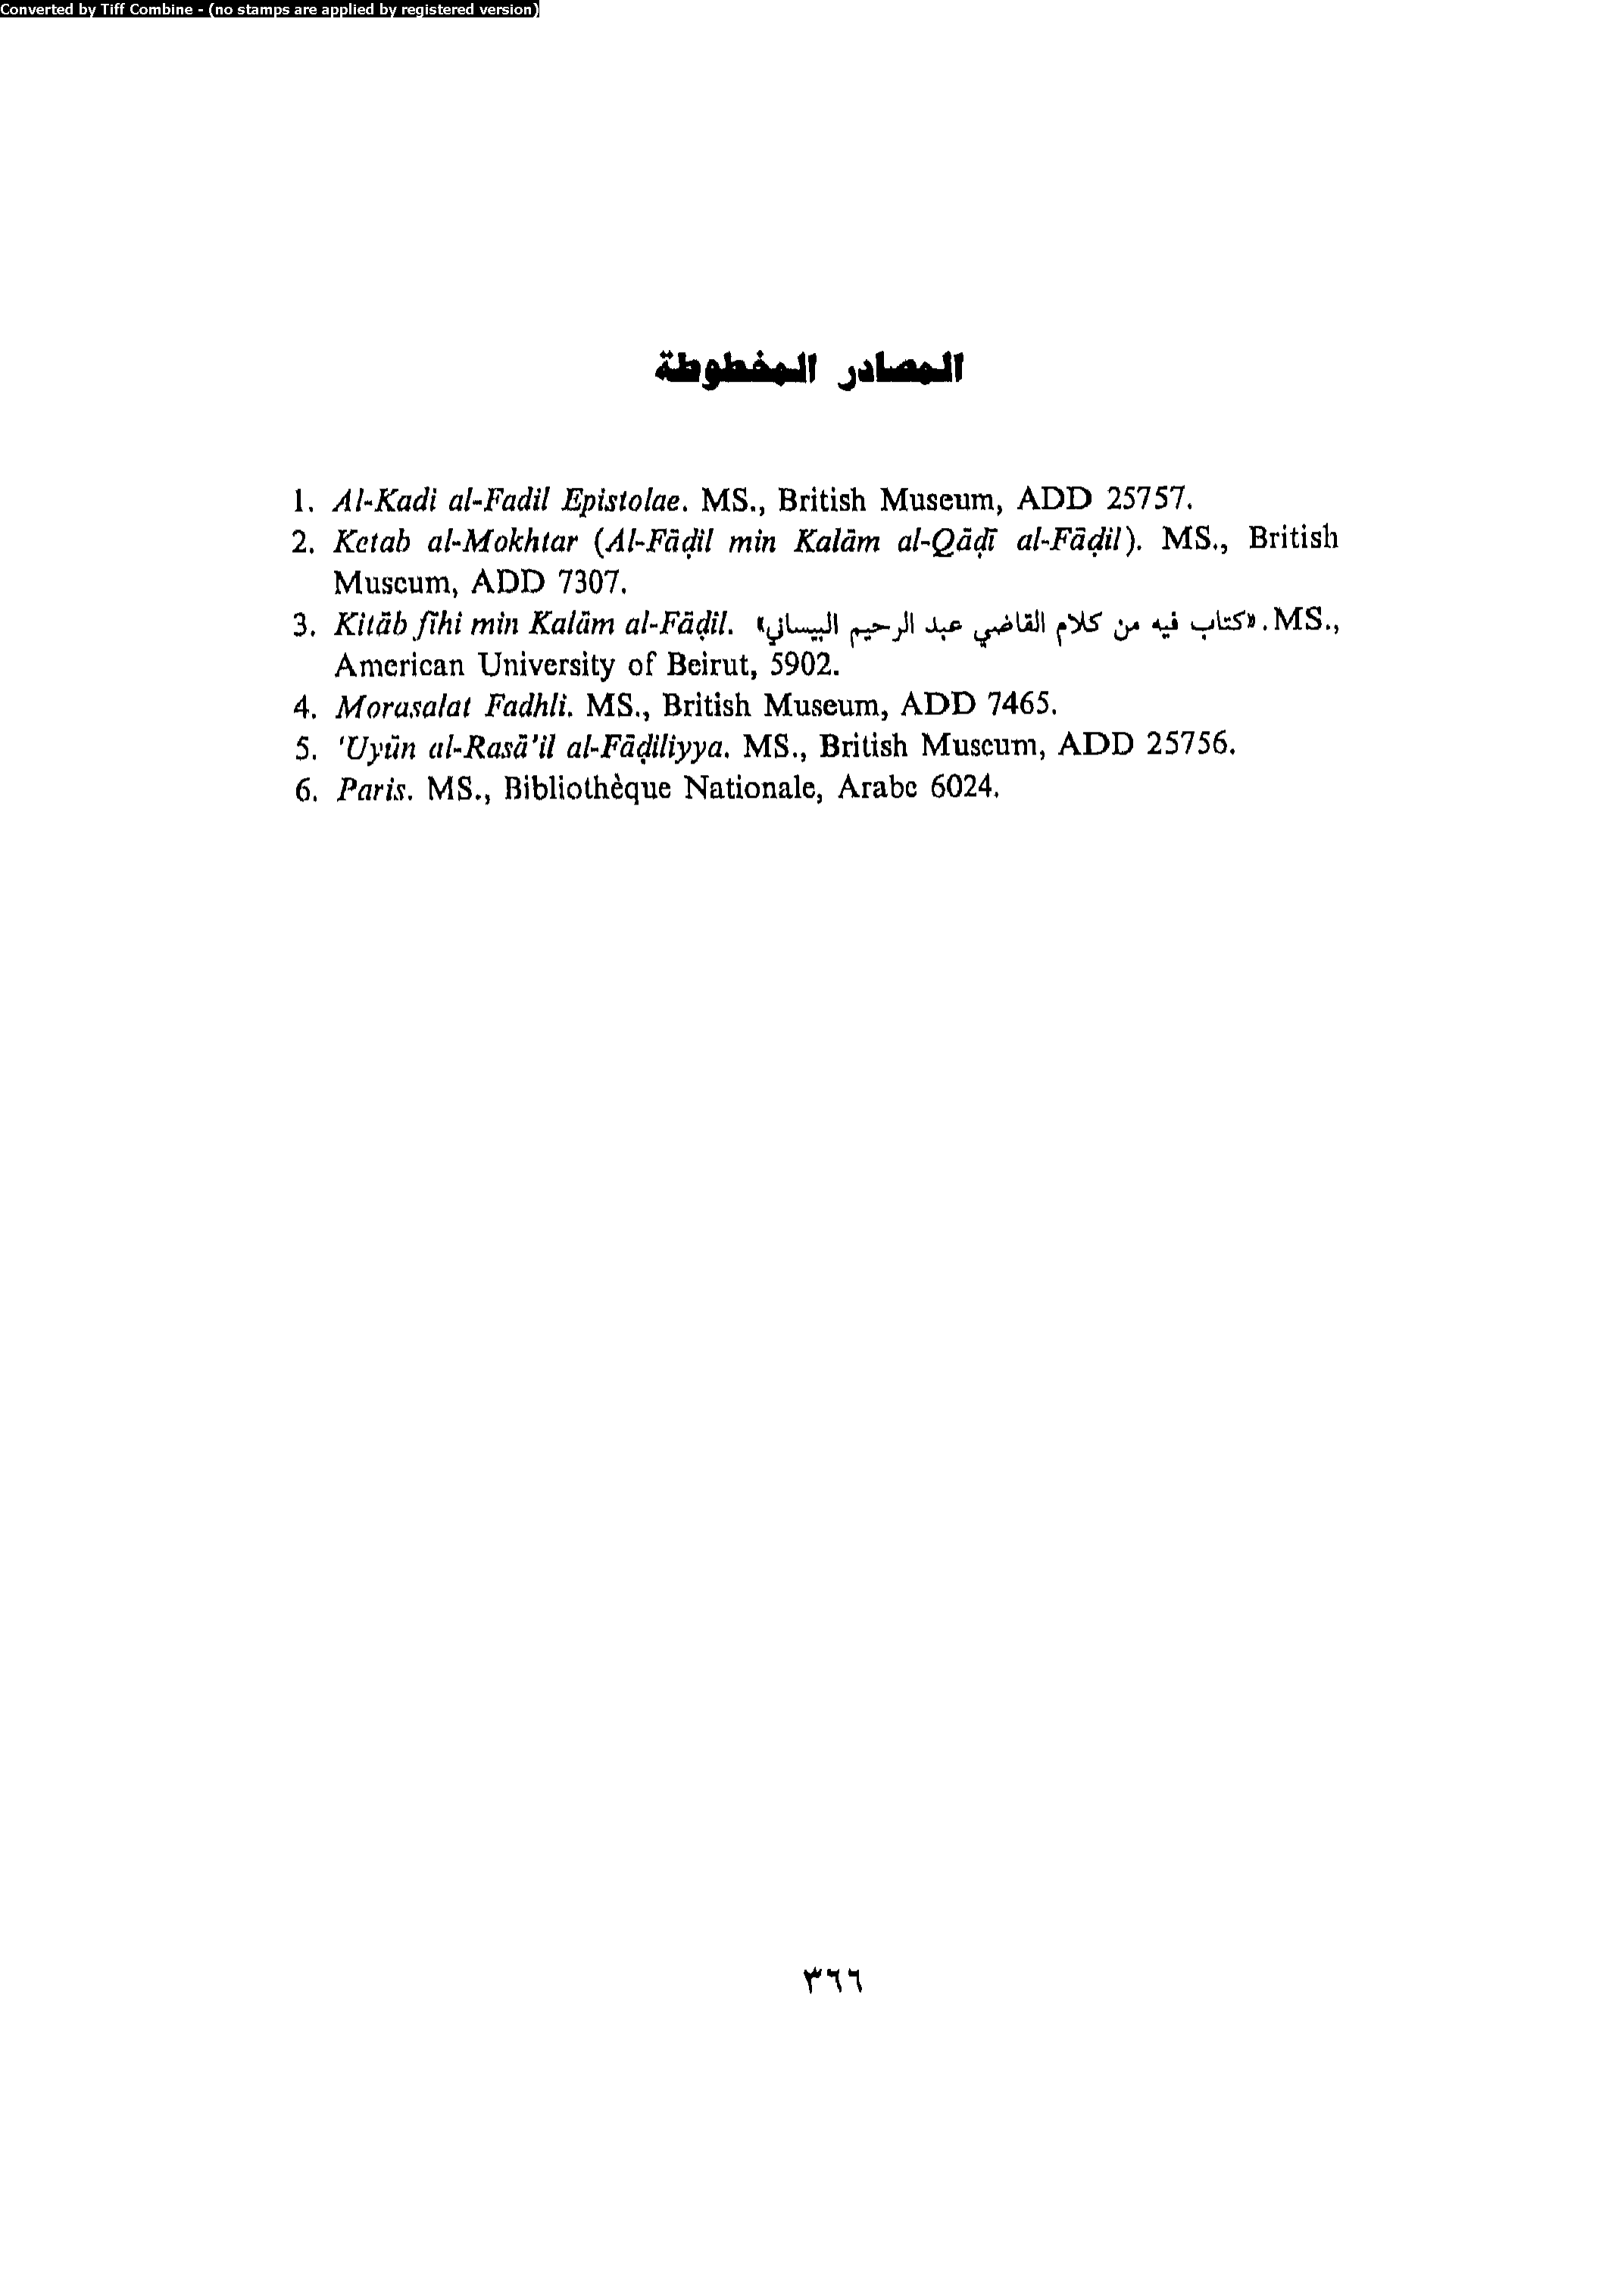 Converted by Tiff Combine - (no stamps are applied by registered version)
المصادر المخطوطة
1. Al-Kadi al-Fadil Epistolae. MS., British Museum, ADD 25757.
2. Ketab al-Mokhtar (Al-Fāḍil min Kalām al-Qāḍī al-Fāḍil). MS., British
Museum, ADD 7307.
3. Kitāb fīhi min Kalām al-Fāḍil. «كتاب فيه من كلام القاضي عبد الرحيم البيساني». MS.,
American University of Beirut, 5902.
4. Morasalat Fadhli. MS., British Museum, ADD 7465.
5. 'Uyūn al-Rasā'il al-Fāḍiliyya. MS., British Museum, ADD 25756.
6. Paris. MS., Bibliothèque Nationale, Arabe 6024.
٣٦٦